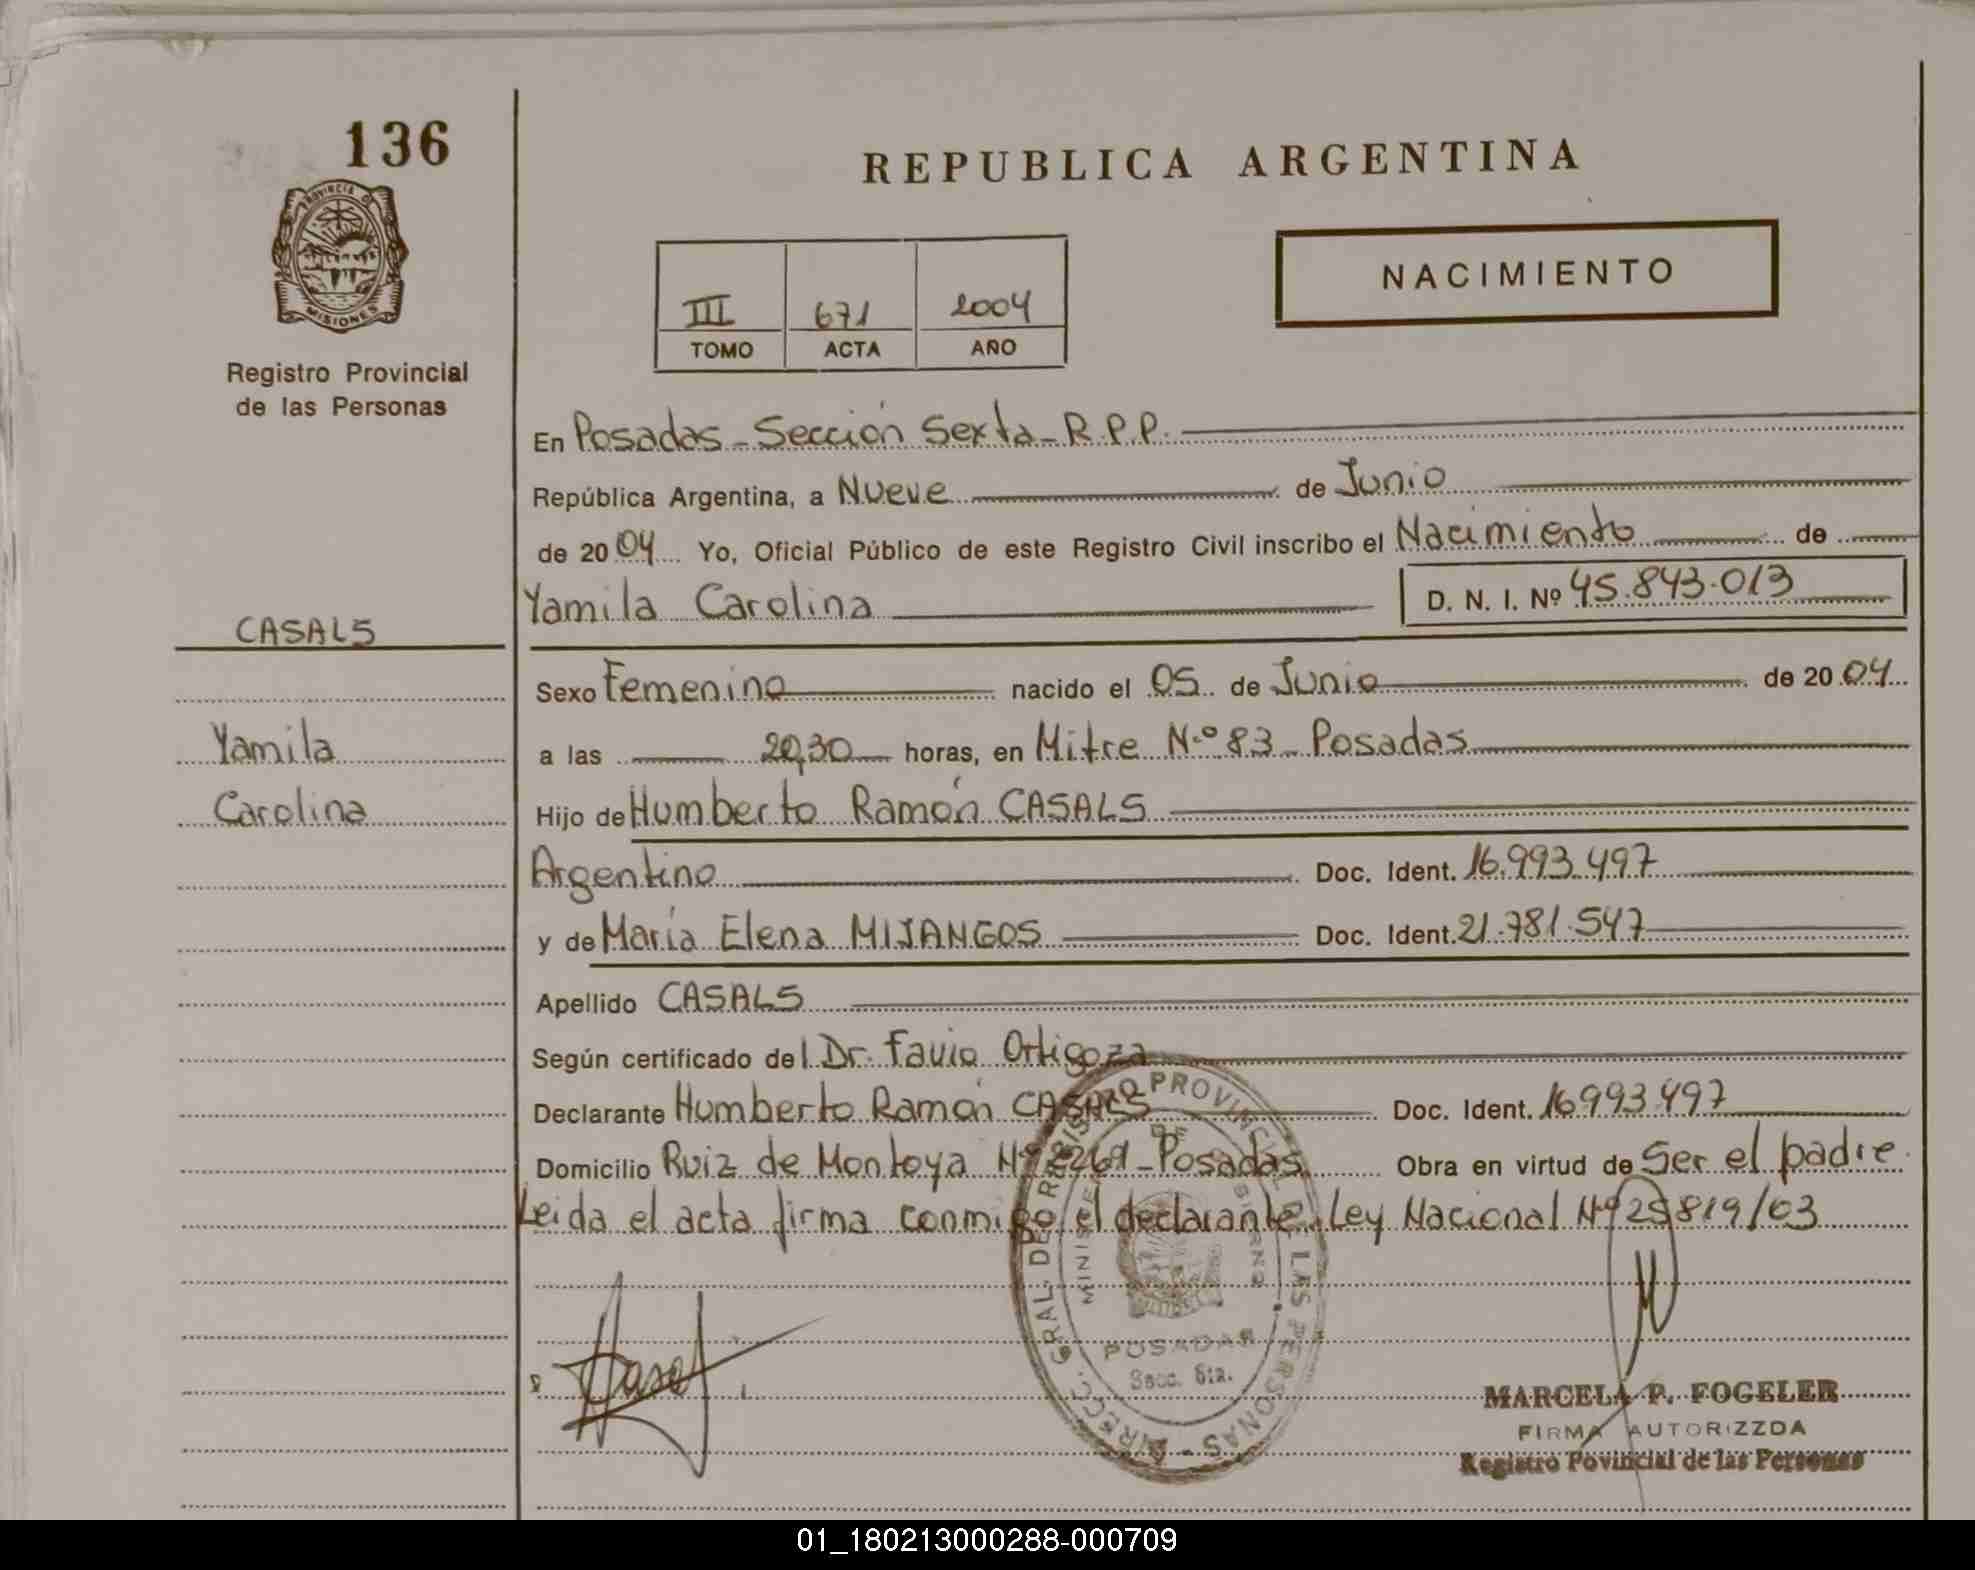 136
PROVINCIA DE
MISIONES
Registro Provincial
de las Personas
CASALS
Yamila
Carolina
REPUBLICA ARGENTINA
III 671 2004
TOMO ACTA AÑO
NACIMIENTO
En Posadas - Sección Sexta - R.P.P.
República Argentina, a Nueve de Junio
de 2004 Yo, Oficial Público de este Registro Civil inscribo el Nacimiento de
Yamila Carolina D. N. I. Nº 45.843.013
Sexo Femenino nacido el 05 de Junio de 2004
a las 20,30 horas, en Mitre N.º 83 - Posadas
Hijo de Humberto Ramón CASALS
Argentino Doc. Ident. 16.993.497
y de María Elena MIJANGOS Doc. Ident. 21.781.547
Apellido CASALS
Según certificado del Dr. Favio Ortigoza
Declarante Humberto Ramón CASALS Doc. Ident. 16993.497
Domicilio Ruiz de Montoya Nº 2269 - Posadas Obra en virtud de Ser el padre.
Leida el acta firma conmigo el declarante. Ley Nacional Nº 25819/03
DIRECC. GRAL. DE REGISTRO PROVINCIAL DE LAS PERSONAS -
MINISTERIO DE GOBIERNO
POSADAS
Secc. 6ta.
MARCELA P. FOGELER
FIRMA AUTORIZZDA
Registro Povincial de las Personas
01_180213000288-000709